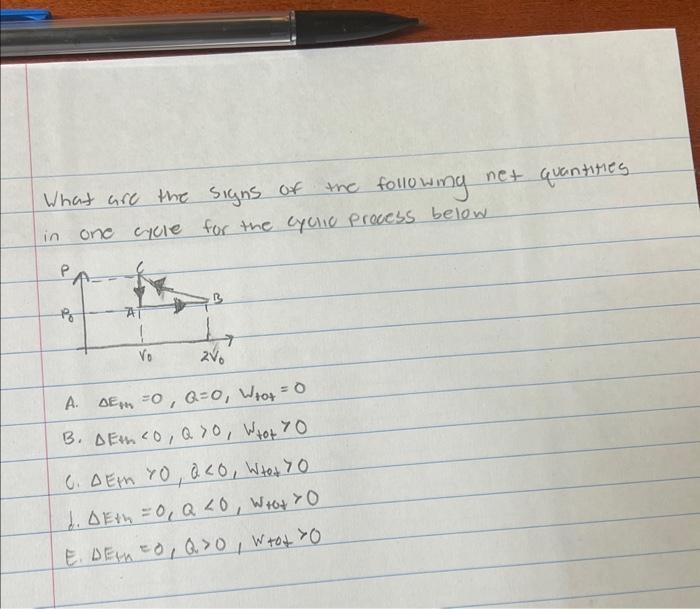 What are the signs of the following net quantities
in one cycle for the cyclic process below
P
C
P₀
A
B
V₀
2V₀
A. ΔEₜₕ =0, Q=0, Wₜₒₜ = 0
B. ΔEth <0, Q >0, Wₜₒₜ >0
C. ΔEth >0, Q<0, Wₜₒₜ >0
d. ΔEth =0, Q <0, Wₜₒₜ >0
E. ΔEth =0, Q>0, Wₜₒₜ >0